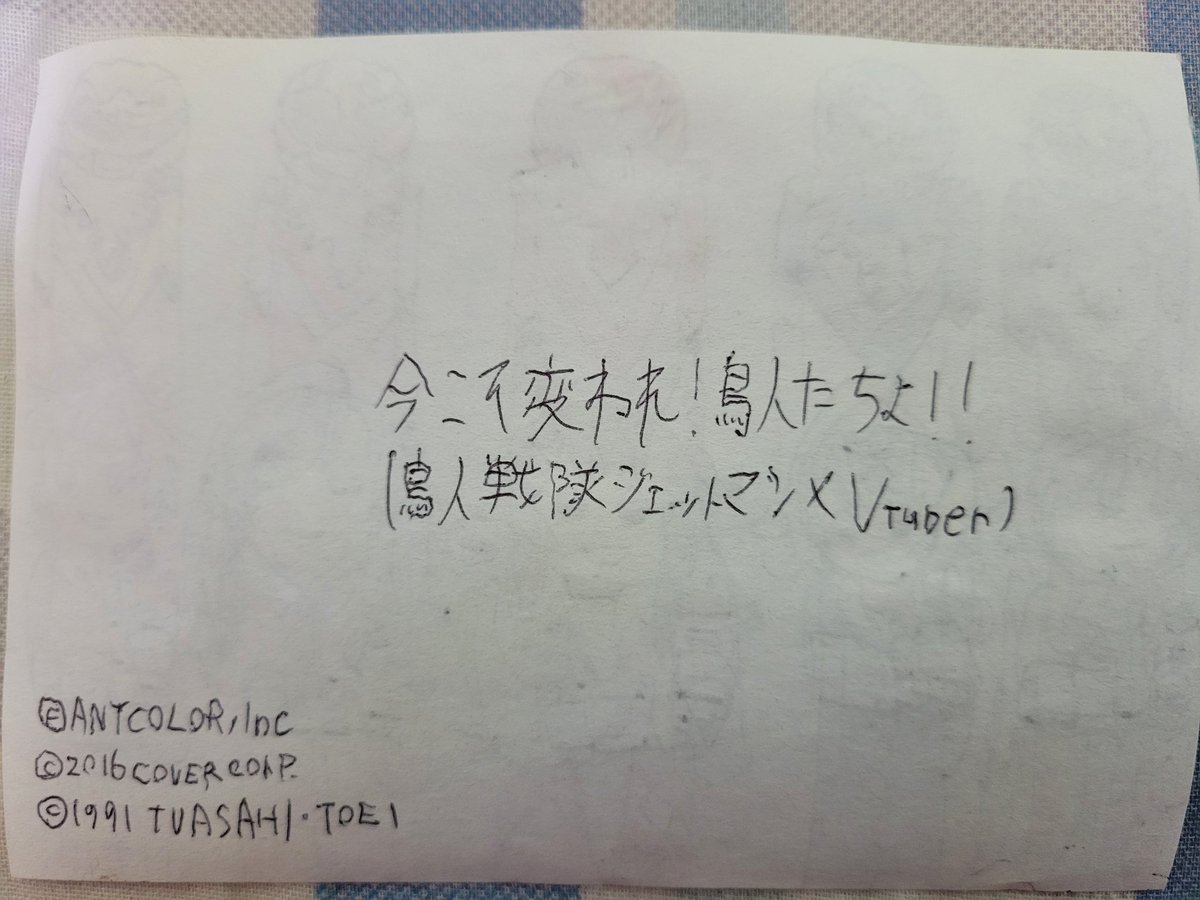 今こそ変われ!鳥人たちよ!!
(鳥人戦隊ジェットマン×VTuber)
©ANYCOLOR,Inc
©2016 COVER CORP.
©1991 TVASAHI・TOEI